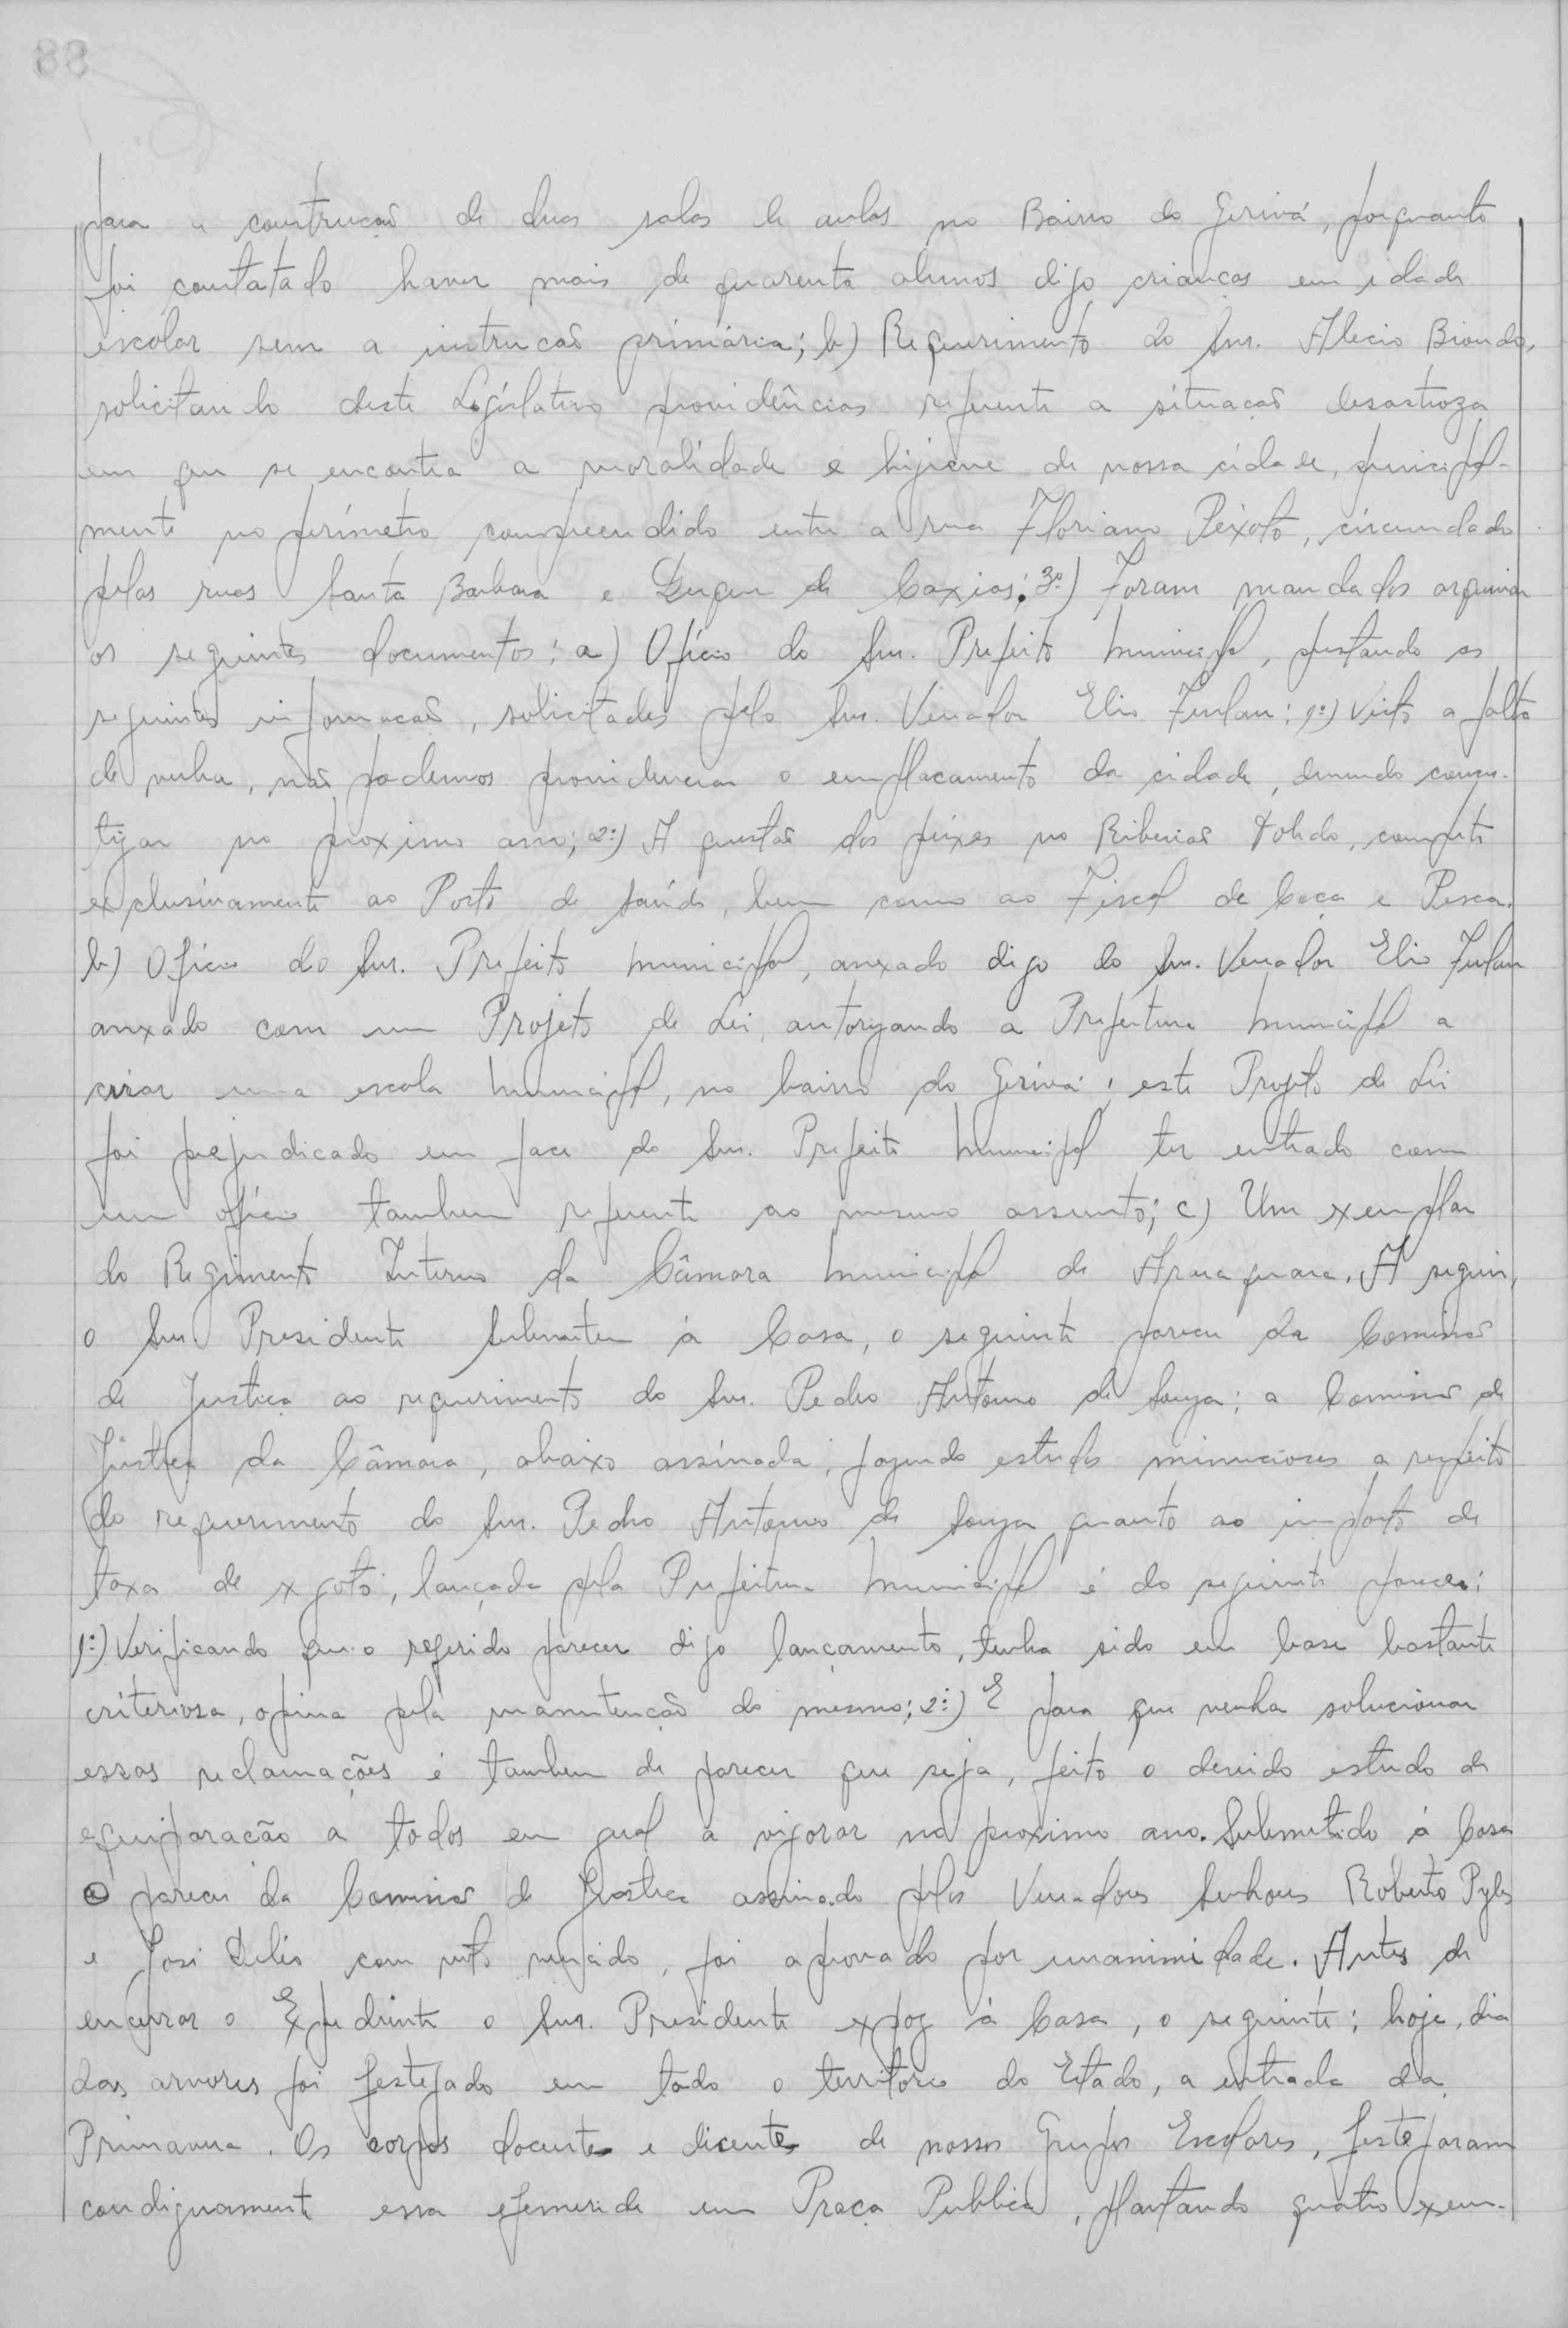 88
para a construcaõ de duas salas de aulas no Bairro do Gerivá, porquanto
foi contatado haver mais de quarenta alunos digo crianças em idade
escolar sem a instrucaõ primária; b) Requerimento do Snr. Alecio Biondo,
solicitando deste Legislativo providências referente a situaçaõ desastroza
em que se encontra a moralidade e higiene de nossa cidade, principal-
mente no perímetro compreendido entre a rua Floriano Peixoto, circundado
pelas ruas Santa Barbara e Duque de Caxias; 3º) Foram mandados arquivar
os seguintes documentos: a) Ofício do Snr. Prefeito Municipal, prestando as
seguintes informacaõ, solicitades pelo Snr. Vereador Elio Furlan: 1º) Visto a falta
de verba, naõ podemos providenciar o emplacamento da cidade, devendo concre-
tizar no proximo ano; 2º) A questaõ dos peixes no Ribeiraõ Toledo, compete
exclusivamente ao Posto de Saúde, bem como ao Fiscal de Caça e Pesca.
b) Ofício do Snr. Prefeito Municipal, anexado digo do Snr. Vereador Elio Furlan
anexado com um Projeto de Lei, autorizando a Prefeitura Municipal a
criar uma escola Municipal, no bairro do Gerivá; este Projeto de Lei
foi prejudicado em face do Snr. Prefeito Municipal ter entrado com
um ofício tambem referente ao mesmo assunto; c) Um exemplar
do Regimento Interno da Câmara Municipal de Araraquara. A seguir,
o Snr. Presidente Submeteu à Casa, o seguinte parecer da Comissaõ
de Justiça ao requerimento do Snr. Pedro Antonio de Souza: a Comissaõ de
Justiça da Câmara, abaixo assinada, fazendo estudos minuciosos a respeito
do requerimento do Snr. Pedro Antonio de Souza quanto ao imposto de
taxa de exgoto, lançada pela Prefeitura Municipal é do seguinte parecer:
1º) Verificando que o referido parecer digo lançamento, tenha sido em base bastante
criteriosa, opina pela manutençaõ do mesmo; 2º) E para que venha solucionar
essas reclamações é tambem de parecer que seja, feito o devido estudo de
equiparacão a todos em geral a vigorar no proximo ano. Submetido à Casa
o parecer da Comissaõ de Justiça assinado pelos Vereadores Senhores Roberto Pyles
e José Lelis com voto vencido, foi aprovado por unanimidade. Antes de
encerrar o Expediente o Snr. Presidente expoz à Casa, o seguinte: hoje, dia
das arvores foi festejado em todo o território do Estado, a entrada da
Primavera. Os corpos docentes e dicentes de nossos Grupos Escolares, festejaram
condignamente essa efemeride em Praça Publica, plantando quatro exem-